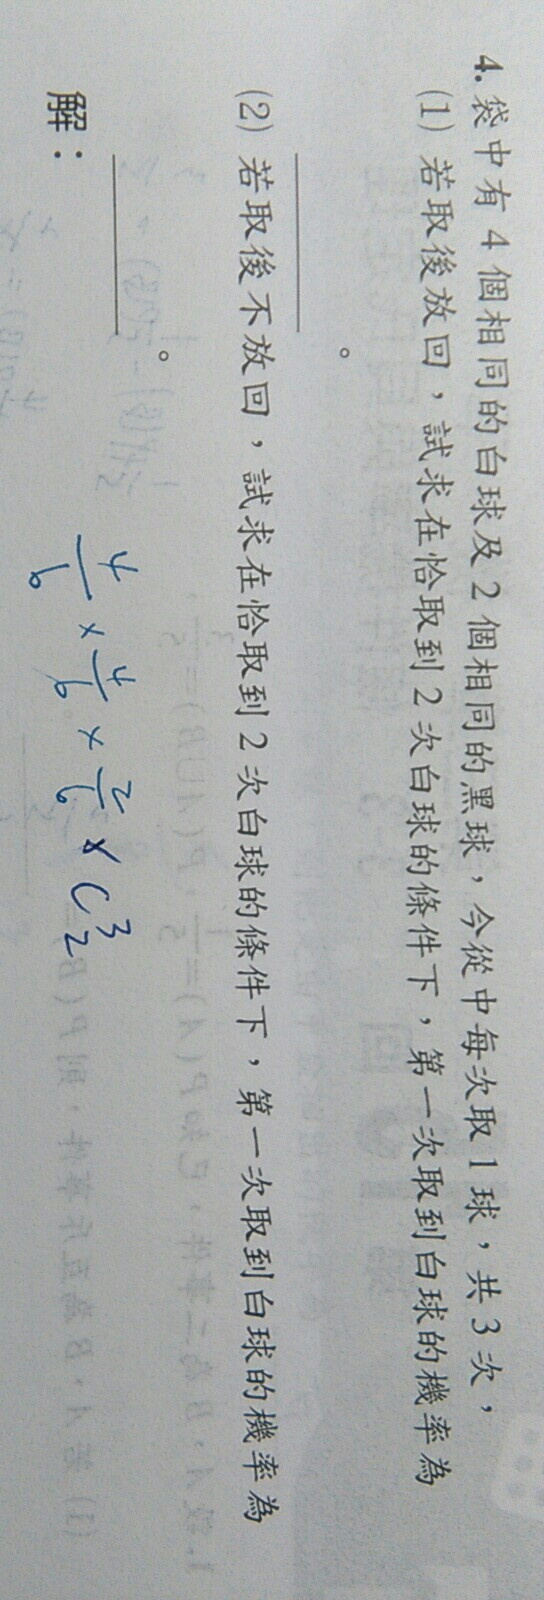 4. 袋中有 4 個相同的白球及 2 個相同的黑球，今從中每次取 1 球，共 3 次，
(1) 若取後放回，試求在恰取到 2 次白球的條件下，第一次取到白球的機率為
______。
(2) 若取後不放回，試求在恰取到 2 次白球的條件下，第一次取到白球的機率為
______。
解：
4/6 × 4/6 × 2/6 × C³₂